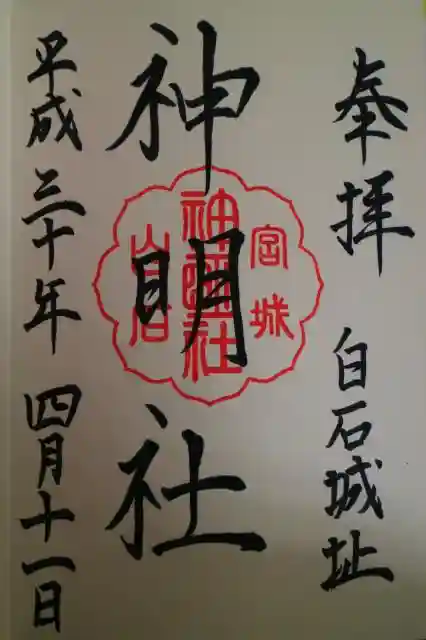 奉拝 白石城址
神明社
宮城
神明社
白石
平成三十年 四月十一日